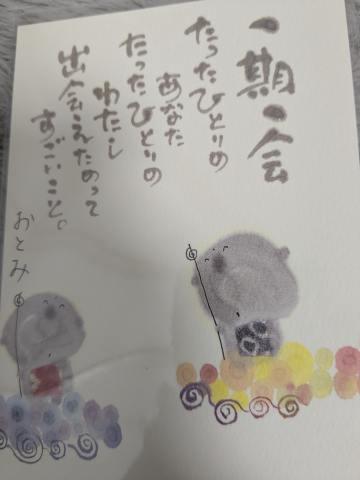 一期一会
たったひとりの
あなた
たったひとりの
わたし
出会えたのって
すごいこと。
おとみ